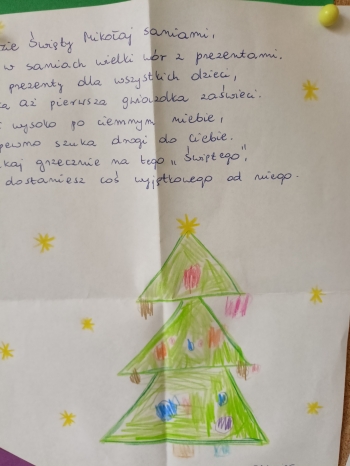 zie Święty Mikołaj saniami,
w saniach wielki wór z prezentami.
prezenty dla wszystkich dzieci,
ka aż pierwsza gwiazdka zaświeci.
wysoko po ciemnym niebie,
pewno szuka drogi do Ciebie.
kaj grzecznie na tego „Świętego",
dostaniesz coś wyjątkowego od niego.